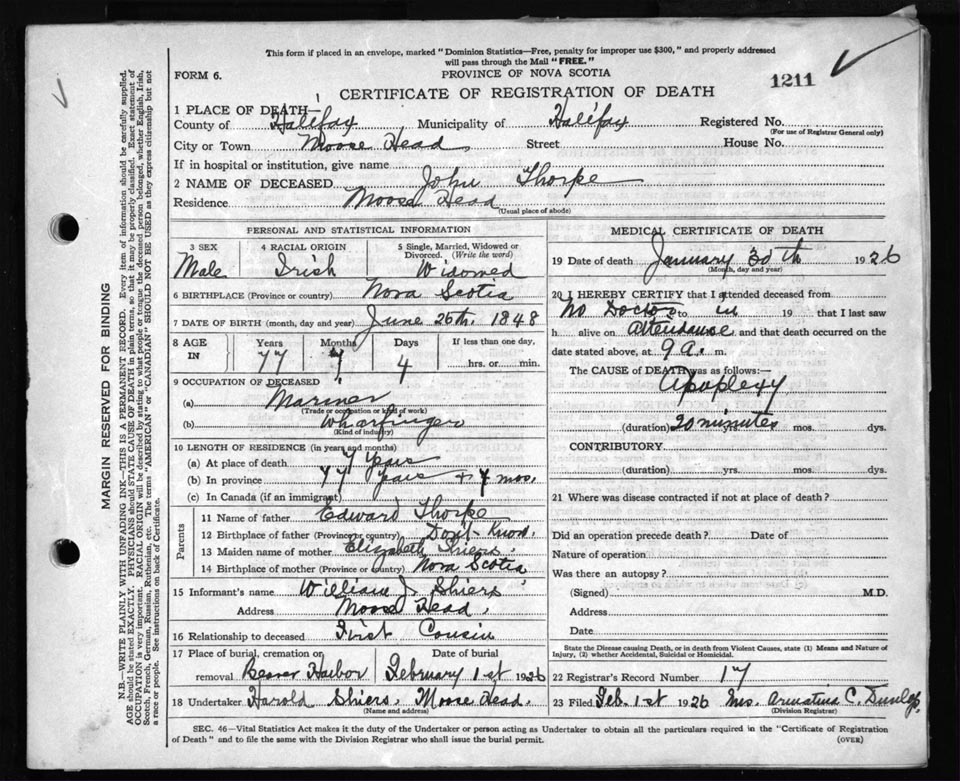 This form if placed in an envelope, marked "Dominion Statistics—Free, penalty for improper use $300," and properly addressed
will pass through the Mail "FREE."
FORM 6.
PROVINCE OF NOVA SCOTIA
1211
CERTIFICATE OF REGISTRATION OF DEATH
1 PLACE OF DEATH—
County of Halifax Municipality of Halifax Registered No.
(For use of Registrar General only)
City or Town Moose Head Street House No.
If in hospital or institution, give name
2 NAME OF DECEASED John Thorpe
Residence Moose Head
(Usual place of abode)
PERSONAL AND STATISTICAL INFORMATION
3 SEX 4 RACIAL ORIGIN 5 Single, Married, Widowed or
Divorced. (Write the word)
Male Irish Widowed
6 BIRTHPLACE (Province or country) Nova Scotia
7 DATE OF BIRTH (month, day and year) June 26th, 1848
8 AGE IN Years Months Days If less than one day,
77 7 4 hrs. or min.
9 OCCUPATION OF DECEASED
(a) Mariner
(Trade or occupation or kind of work)
(b) Wharfinger
(Kind of industry)
10 LENGTH OF RESIDENCE (in years and months)
(a) At place of death 7 Years
(b) In province 77 Years + 7 mos.
(c) In Canada (if an immigrant)
Parents
11 Name of father Edward Thorpe
12 Birthplace of father (Province or country) Don't Know.
13 Maiden name of mother Elizabeth Shiers.
14 Birthplace of mother (Province or Country) Nova Scotia
15 Informant's name William J. Shiers
Address Moose Head.
16 Relationship to deceased First Cousin
17 Place of burial, cremation or removal Beaver Harbor Date of burial February 1st 1926
18 Undertaker Harold Shiers, Moose Head.
(Name and address)
MEDICAL CERTIFICATE OF DEATH
19 Date of death January 30th 1926
(Month, day and year)
20 I HEREBY CERTIFY that I attended deceased from
No Doctor to in 19 that I last saw
h alive on attendance and that death occurred on
date stated above, at 9 a. m.
The CAUSE of DEATH was as follows:—
Apoplexy
(duration) 20 minutes yrs. mos. dys.
CONTRIBUTORY
(duration) yrs. mos. dys.
21 Where was disease contracted if not at place of death?
Did an operation precede death? Date of
Nature of operation
Was there an autopsy?
(Signed) M.D.
Address
Date
State the Disease causing Death, or in death from Violent Causes, state (1) Means and Nature of
Injury, (2) whether Accidental, Suicidal or Homicidal.
22 Registrar's Record Number 17
23 Filed Feb. 1st 1926 Mrs. C. Dunlop.
(Division Registrar)
SEC. 46—Vital Statistics Act makes it the duty of the Undertaker or person acting as Undertaker to obtain all the particulars required in the "Certificate of Registration
of Death" and to file the same with the Division Registrar who shall issue the burial permit.
(OVER)
MARGIN RESERVED FOR BINDING
N.B.—WRITE PLAINLY WITH UNFADING INK—THIS IS A PERMANENT RECORD. Every item of information should be carefully supplied.
AGE should be stated EXACTLY. PHYSICIANS should STATE CAUSE OF DEATH in plain terms, so that it may be properly classified. Exact statement of
OCCUPATION is very important. RACIAL ORIGIN will be described by stating to what people or tongue the deceased person belonged, whether English, Irish,
Scotch, French, German, Russian, Ruthenian, etc. The terms "AMERICAN" or "CANADIAN" SHOULD NOT BE USED as they express citizenship but not
a race or people. See instructions on back of Certificate.